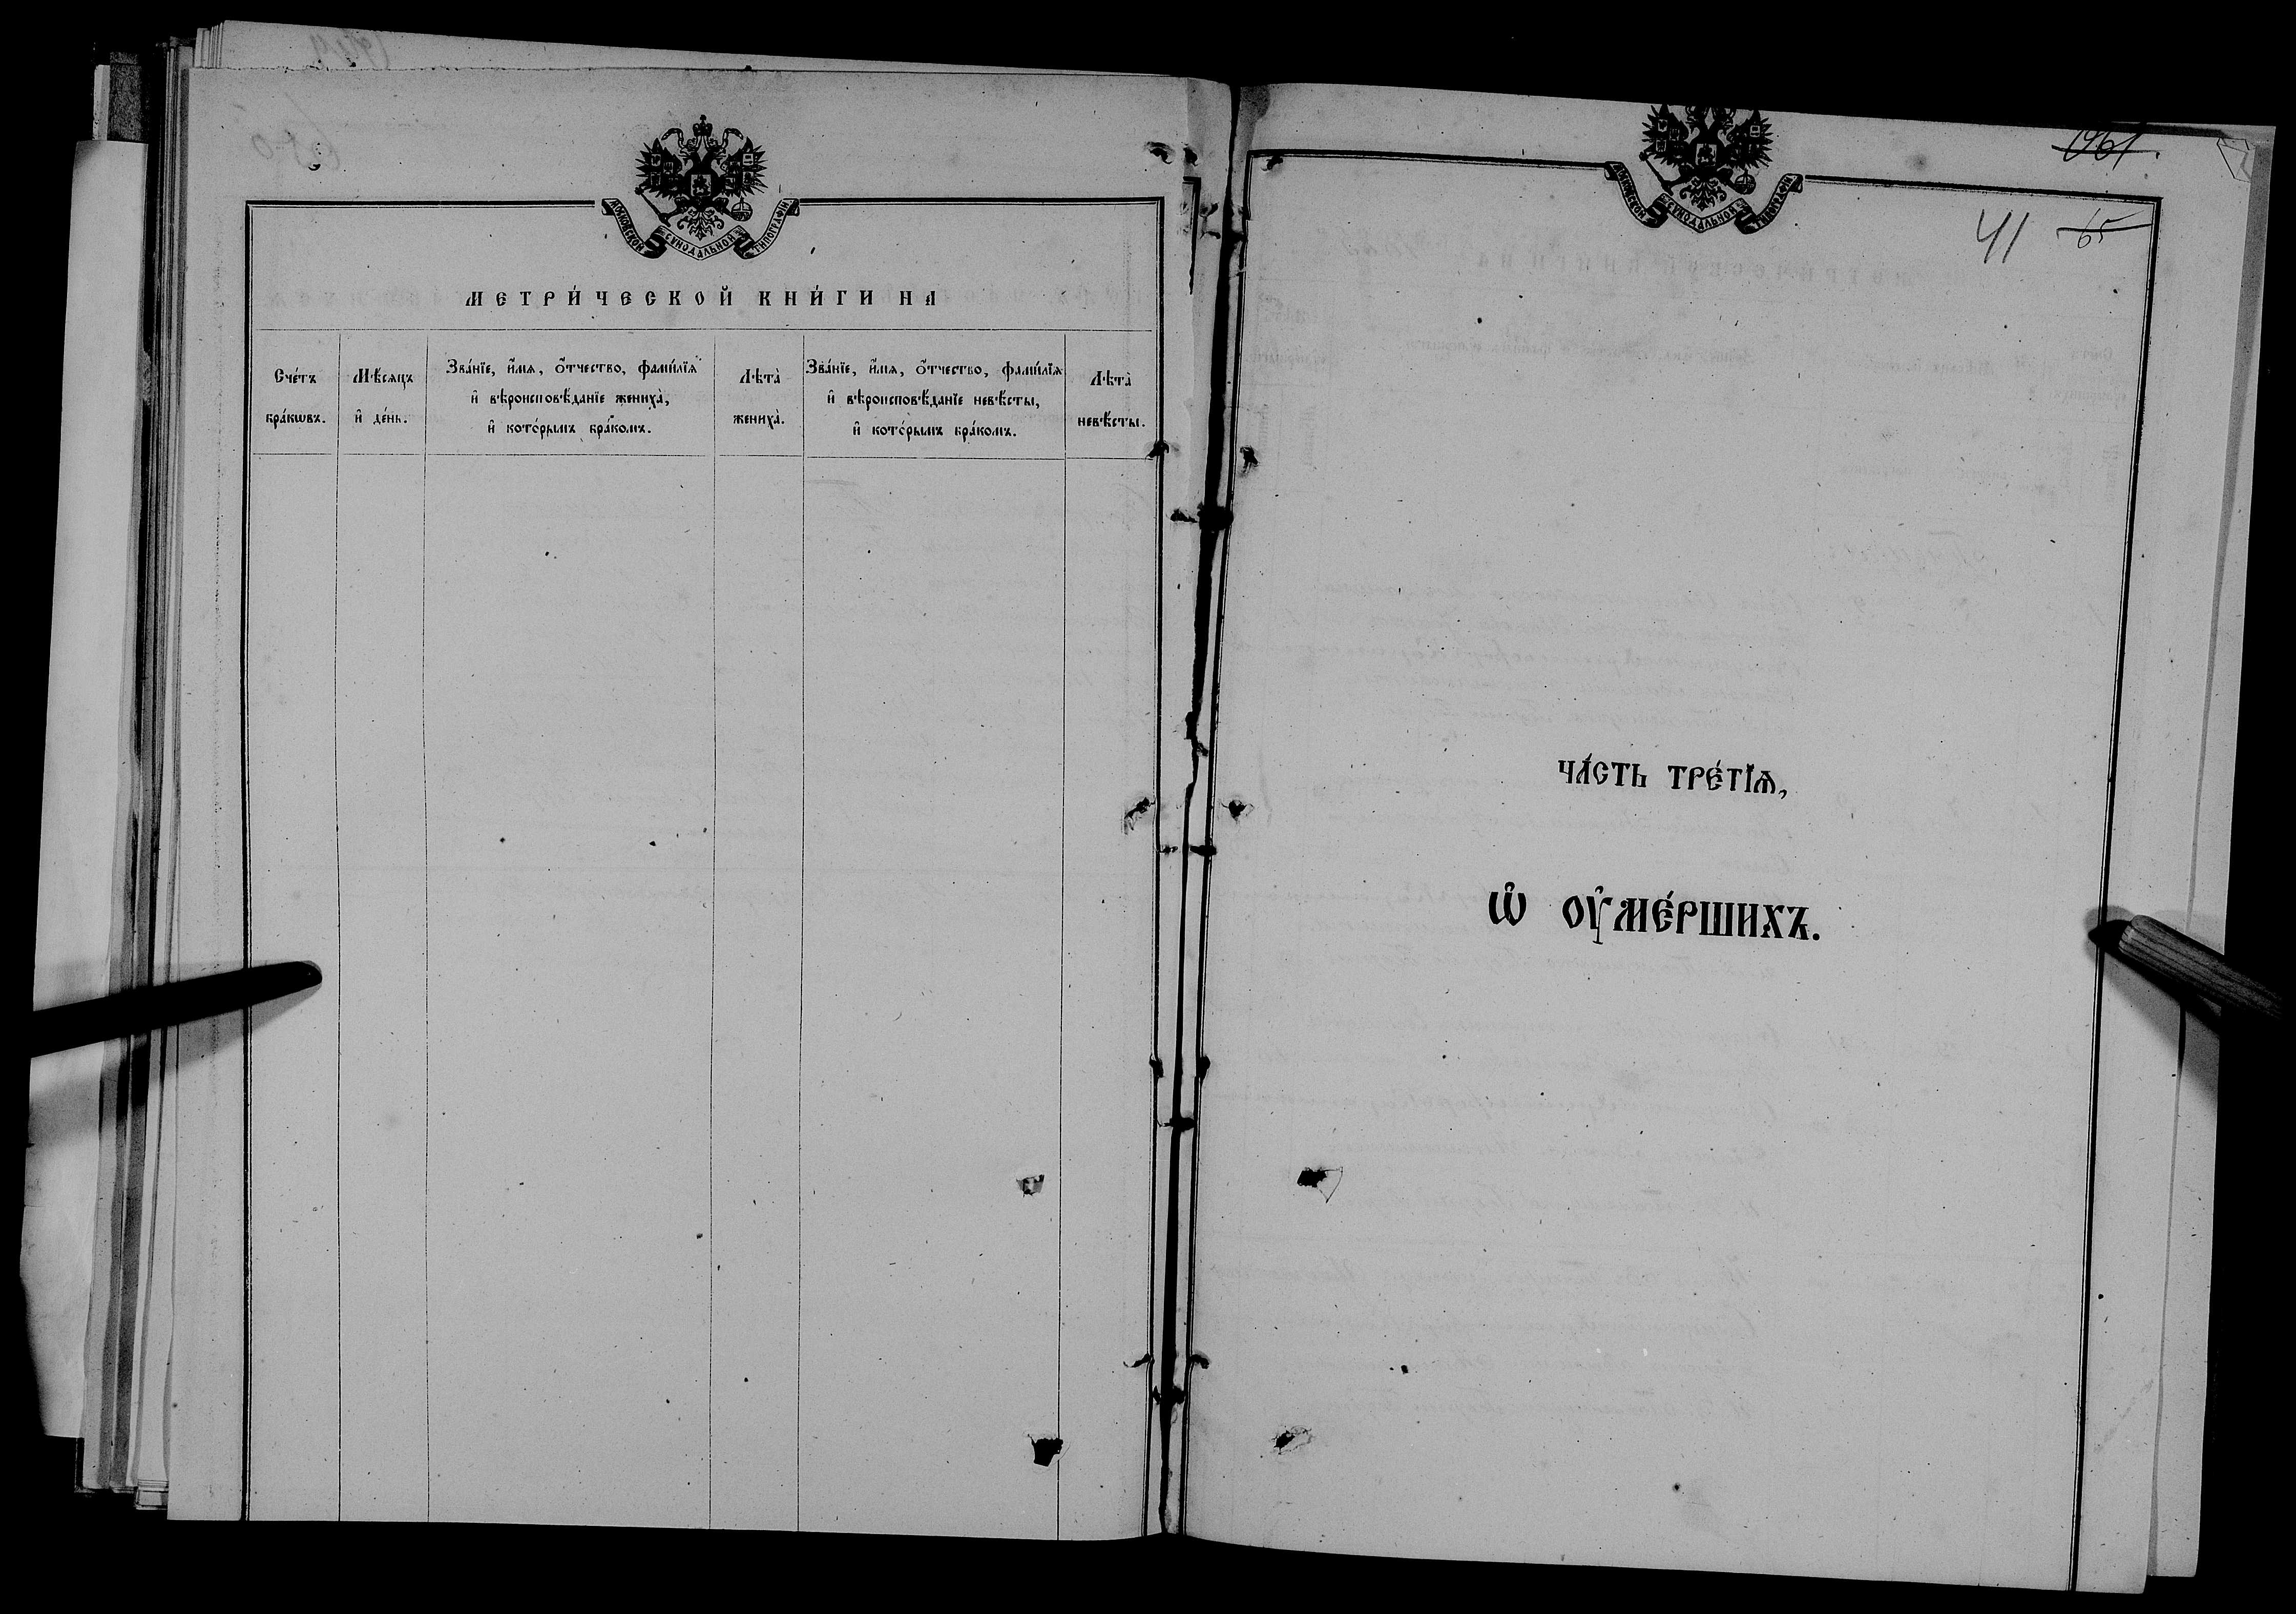 МОСКОВСКОЙ СѴНОДАЛЬНОЙ ТИПОГРАФІИ
МЕТРИ́ЧЕСКОЙ КНИ́ГИ НА
Сче́тъ
бра́кѡвъ.
Мѣ́сяцъ
и҆ де́нь.
Зва́нїе, и҆́мѧ, ѻ҆́тчество, фами́лїѧ
и҆ вѣроисповѣ́данїе жениха̀,
и҆ кото́рымъ бра́комъ.
Лѣта̀
жениха̀.
Зва́нїе, и҆́мѧ, ѻ҆́тчество, фами́лїѧ
и҆ вѣроисповѣ́данїе невѣ́сты,
и҆ кото́рымъ бра́комъ.
Лѣта̀
невѣ́сты.
МОСКОВСКОЙ СѴНОДАЛЬНОЙ ТИПОГРАФІИ
1961
41 65
ЧА́СТЬ ТРЕ́ТЇѦ,
Ѡ҆ ОУ҆МЕ́РШИХЪ.